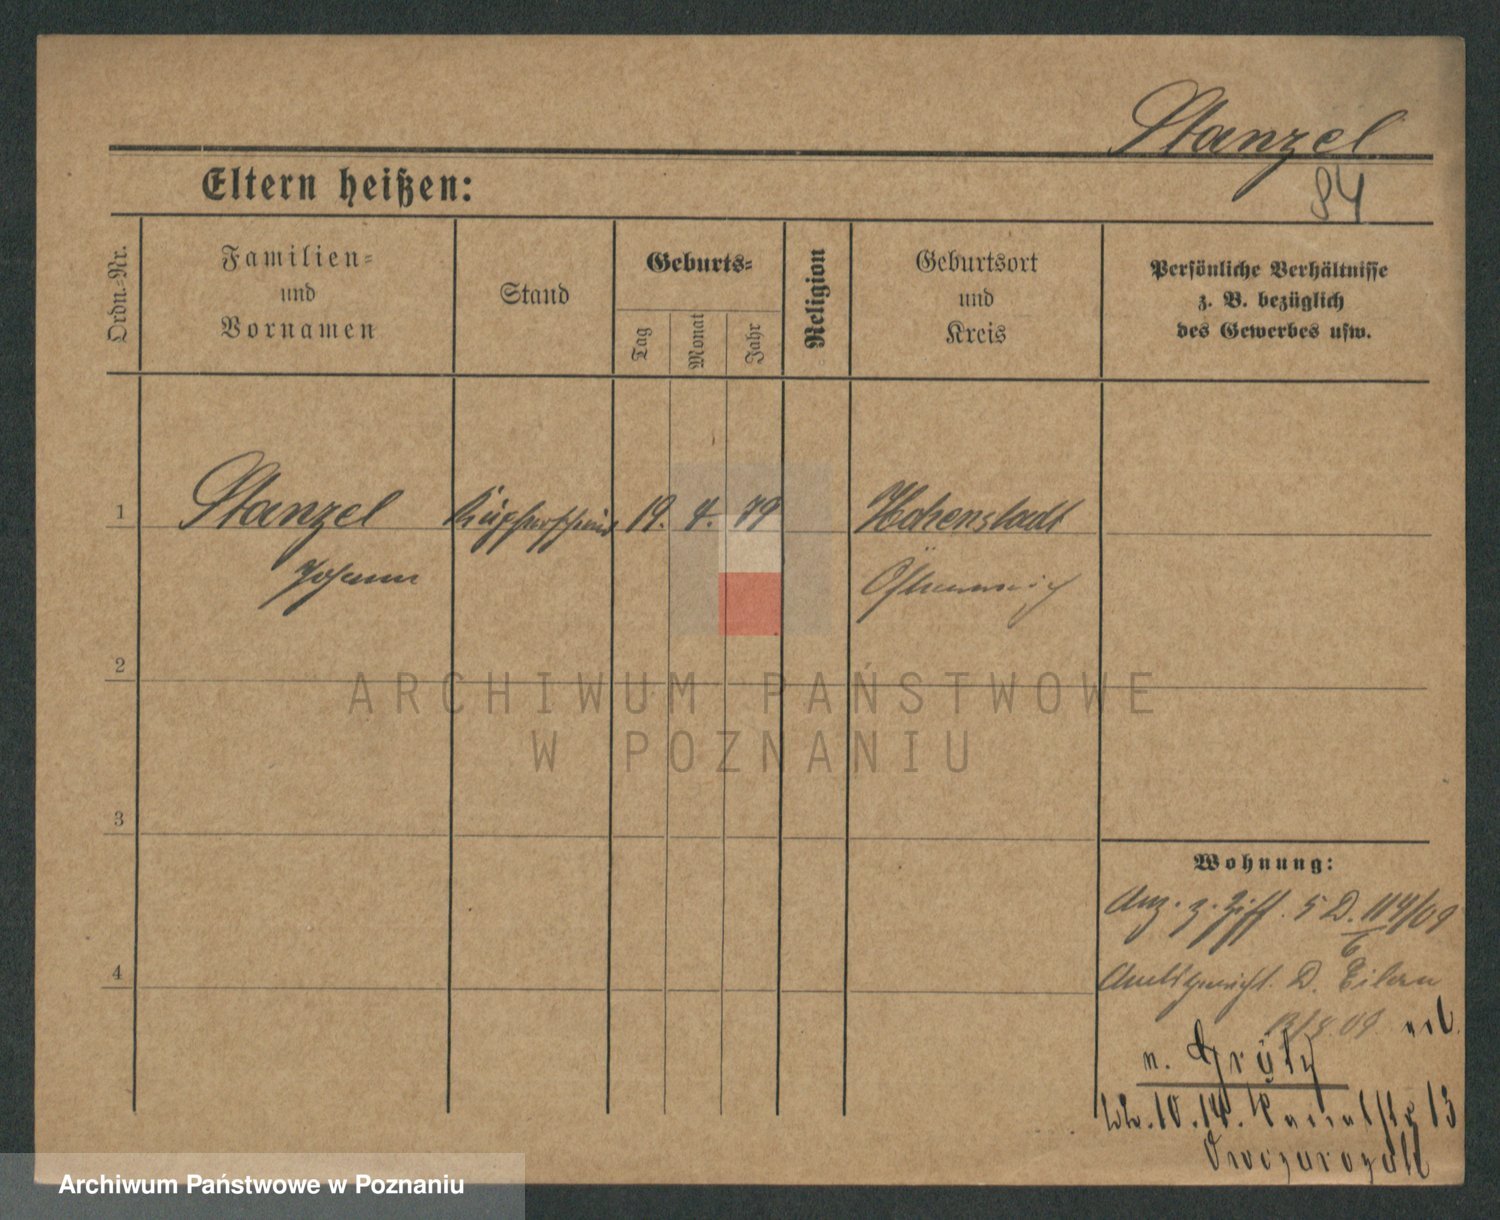 Stanzel
84
Eltern heißen:
Ordn.-Nr.
Familien-
und
Vornamen
Stand
Geburts-
Tag
Monat
Jahr
Religion
Geburtsort
und
Kreis
Persönliche Verhältnisse
z. B. bezüglich
des Gewerbes usw.
1 Stanzel 19. 4. 79 Hohenstadt
Johann Österreich
2
3
4
ARCHIWUM PAŃSTWOWE
W POZNANIU
Wohnung:
Anz. z. Ziff. 5 D. 114/09
6
Amtsgericht. D. Eilau
09
n. Grätz
10.14. 13
Archiwum Państwowe w Poznaniu